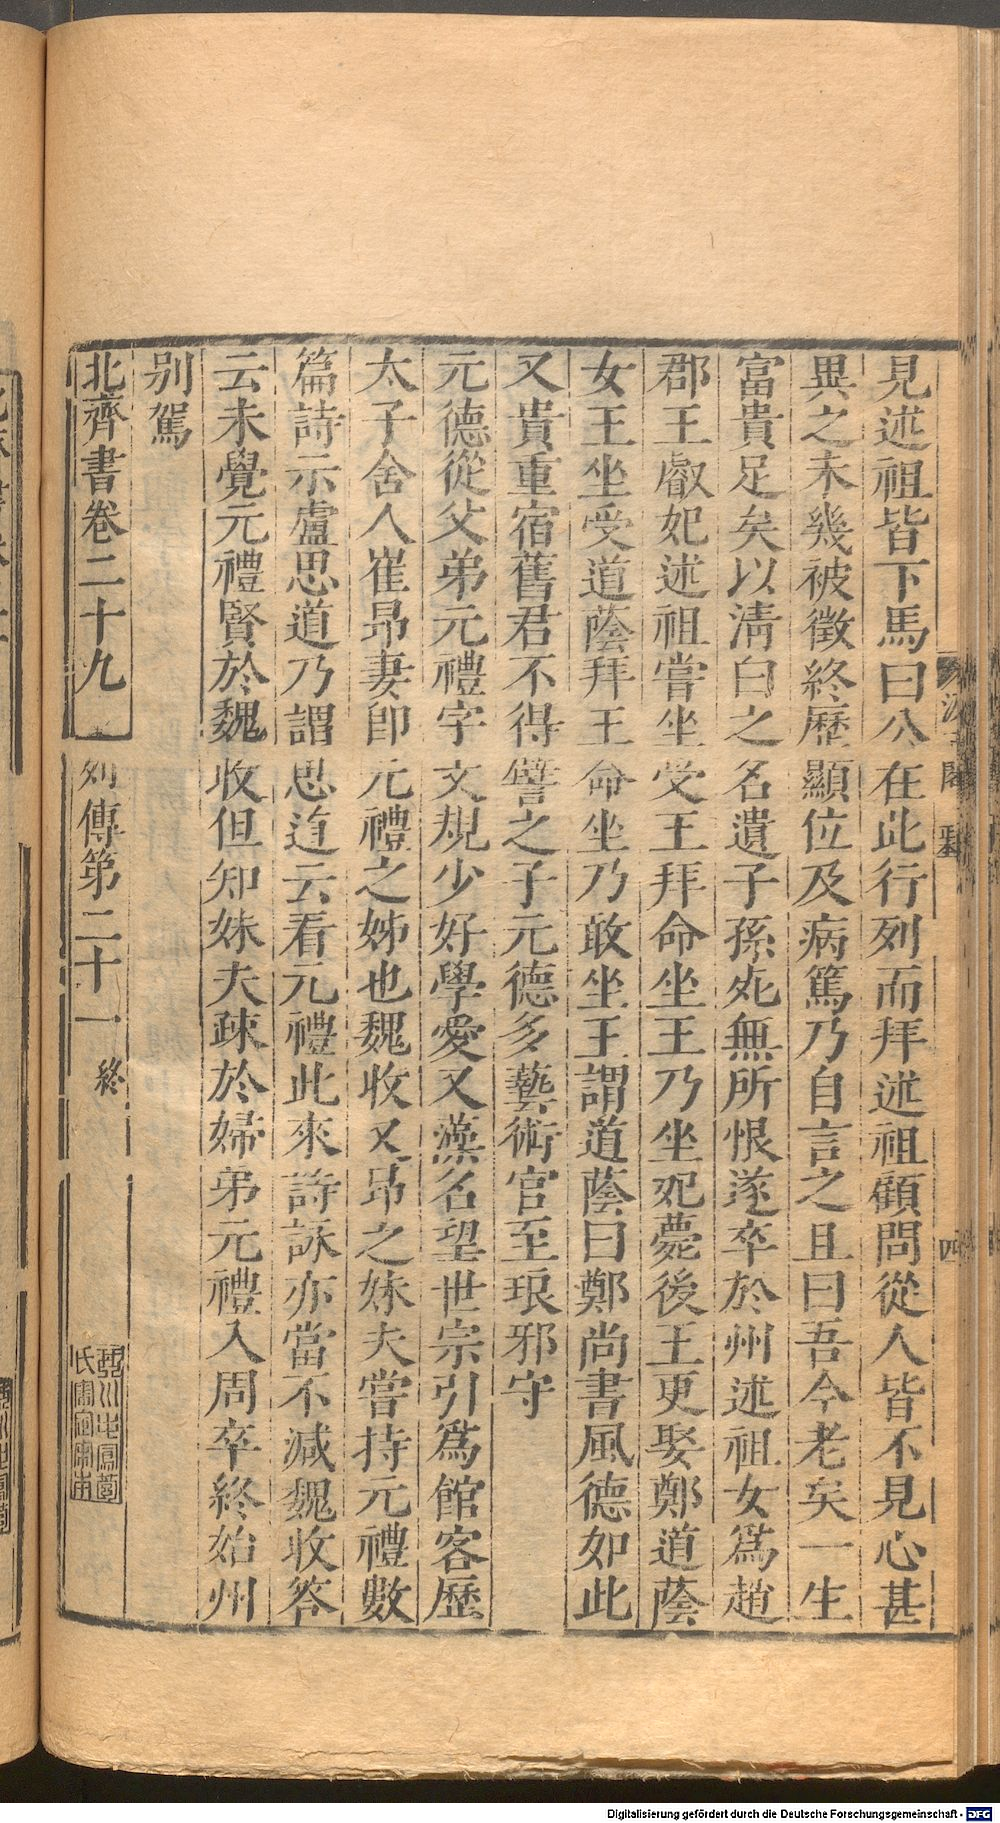 見述祖皆下馬曰公在此行列而拜述祖顧問從人皆不見心甚
異之未幾被徵終歷顯位及病篤乃自言之且曰吾今老矣一生
富貴足矣以淸白之名遺子孫死無所恨遂卒於州述祖女爲趙
郡王叡妃述祖嘗坐受王拜命坐王乃坐妃薨後王更娶鄭道蔭
女王坐受道蔭拜王命坐乃敢坐王謂道蔭曰鄭尚書風德如此
又貴重宿舊君不得譬之子元德多藝術官至琅邪守
元德從父弟元禮字文規少好學愛文藻名望世宗引爲館客歷
太子舍人崔昂妻卽元禮之姊也魏收又昂之妹夫嘗持元禮數
篇詩示盧思道乃謂思道云看元禮此來詩詠亦當不減魏收答
云未覺元禮賢於魏收但知妹夫疎於婦弟元禮入周卒終始州
别駕
北齊書卷二十九 列傳第二十一 終
四
Digitalisierung gefördert durch die Deutsche Forschungsgemeinschaft - DFG